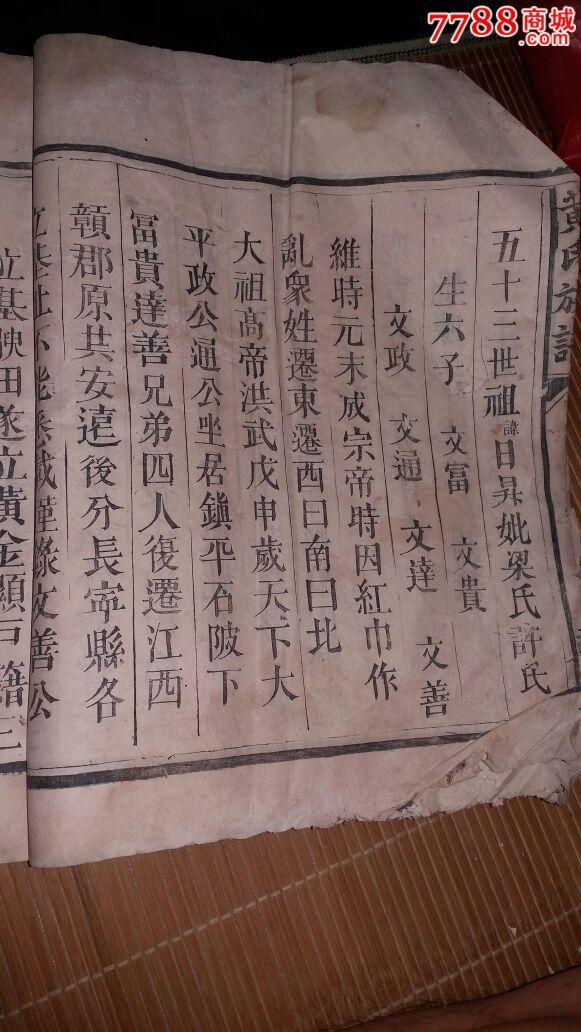 7788商城
.com
黃氏族譜
五十三世祖諱日昇妣梁氏許氏
生六子 文富 文貴
文政 文通 文達 文善
維時元末成宗帝時因紅巾作
亂衆姓遷東遷西曰南曰北
大祖髙帝洪武戊申歲天下大
平政公通公坐居鎮平石陂下
富貴達善兄弟四人復遷江西
贛郡原共安逺後分長寧縣各
立基址不能悉載謹錄文善公
立基腴田遂立黃金顯戶籍三